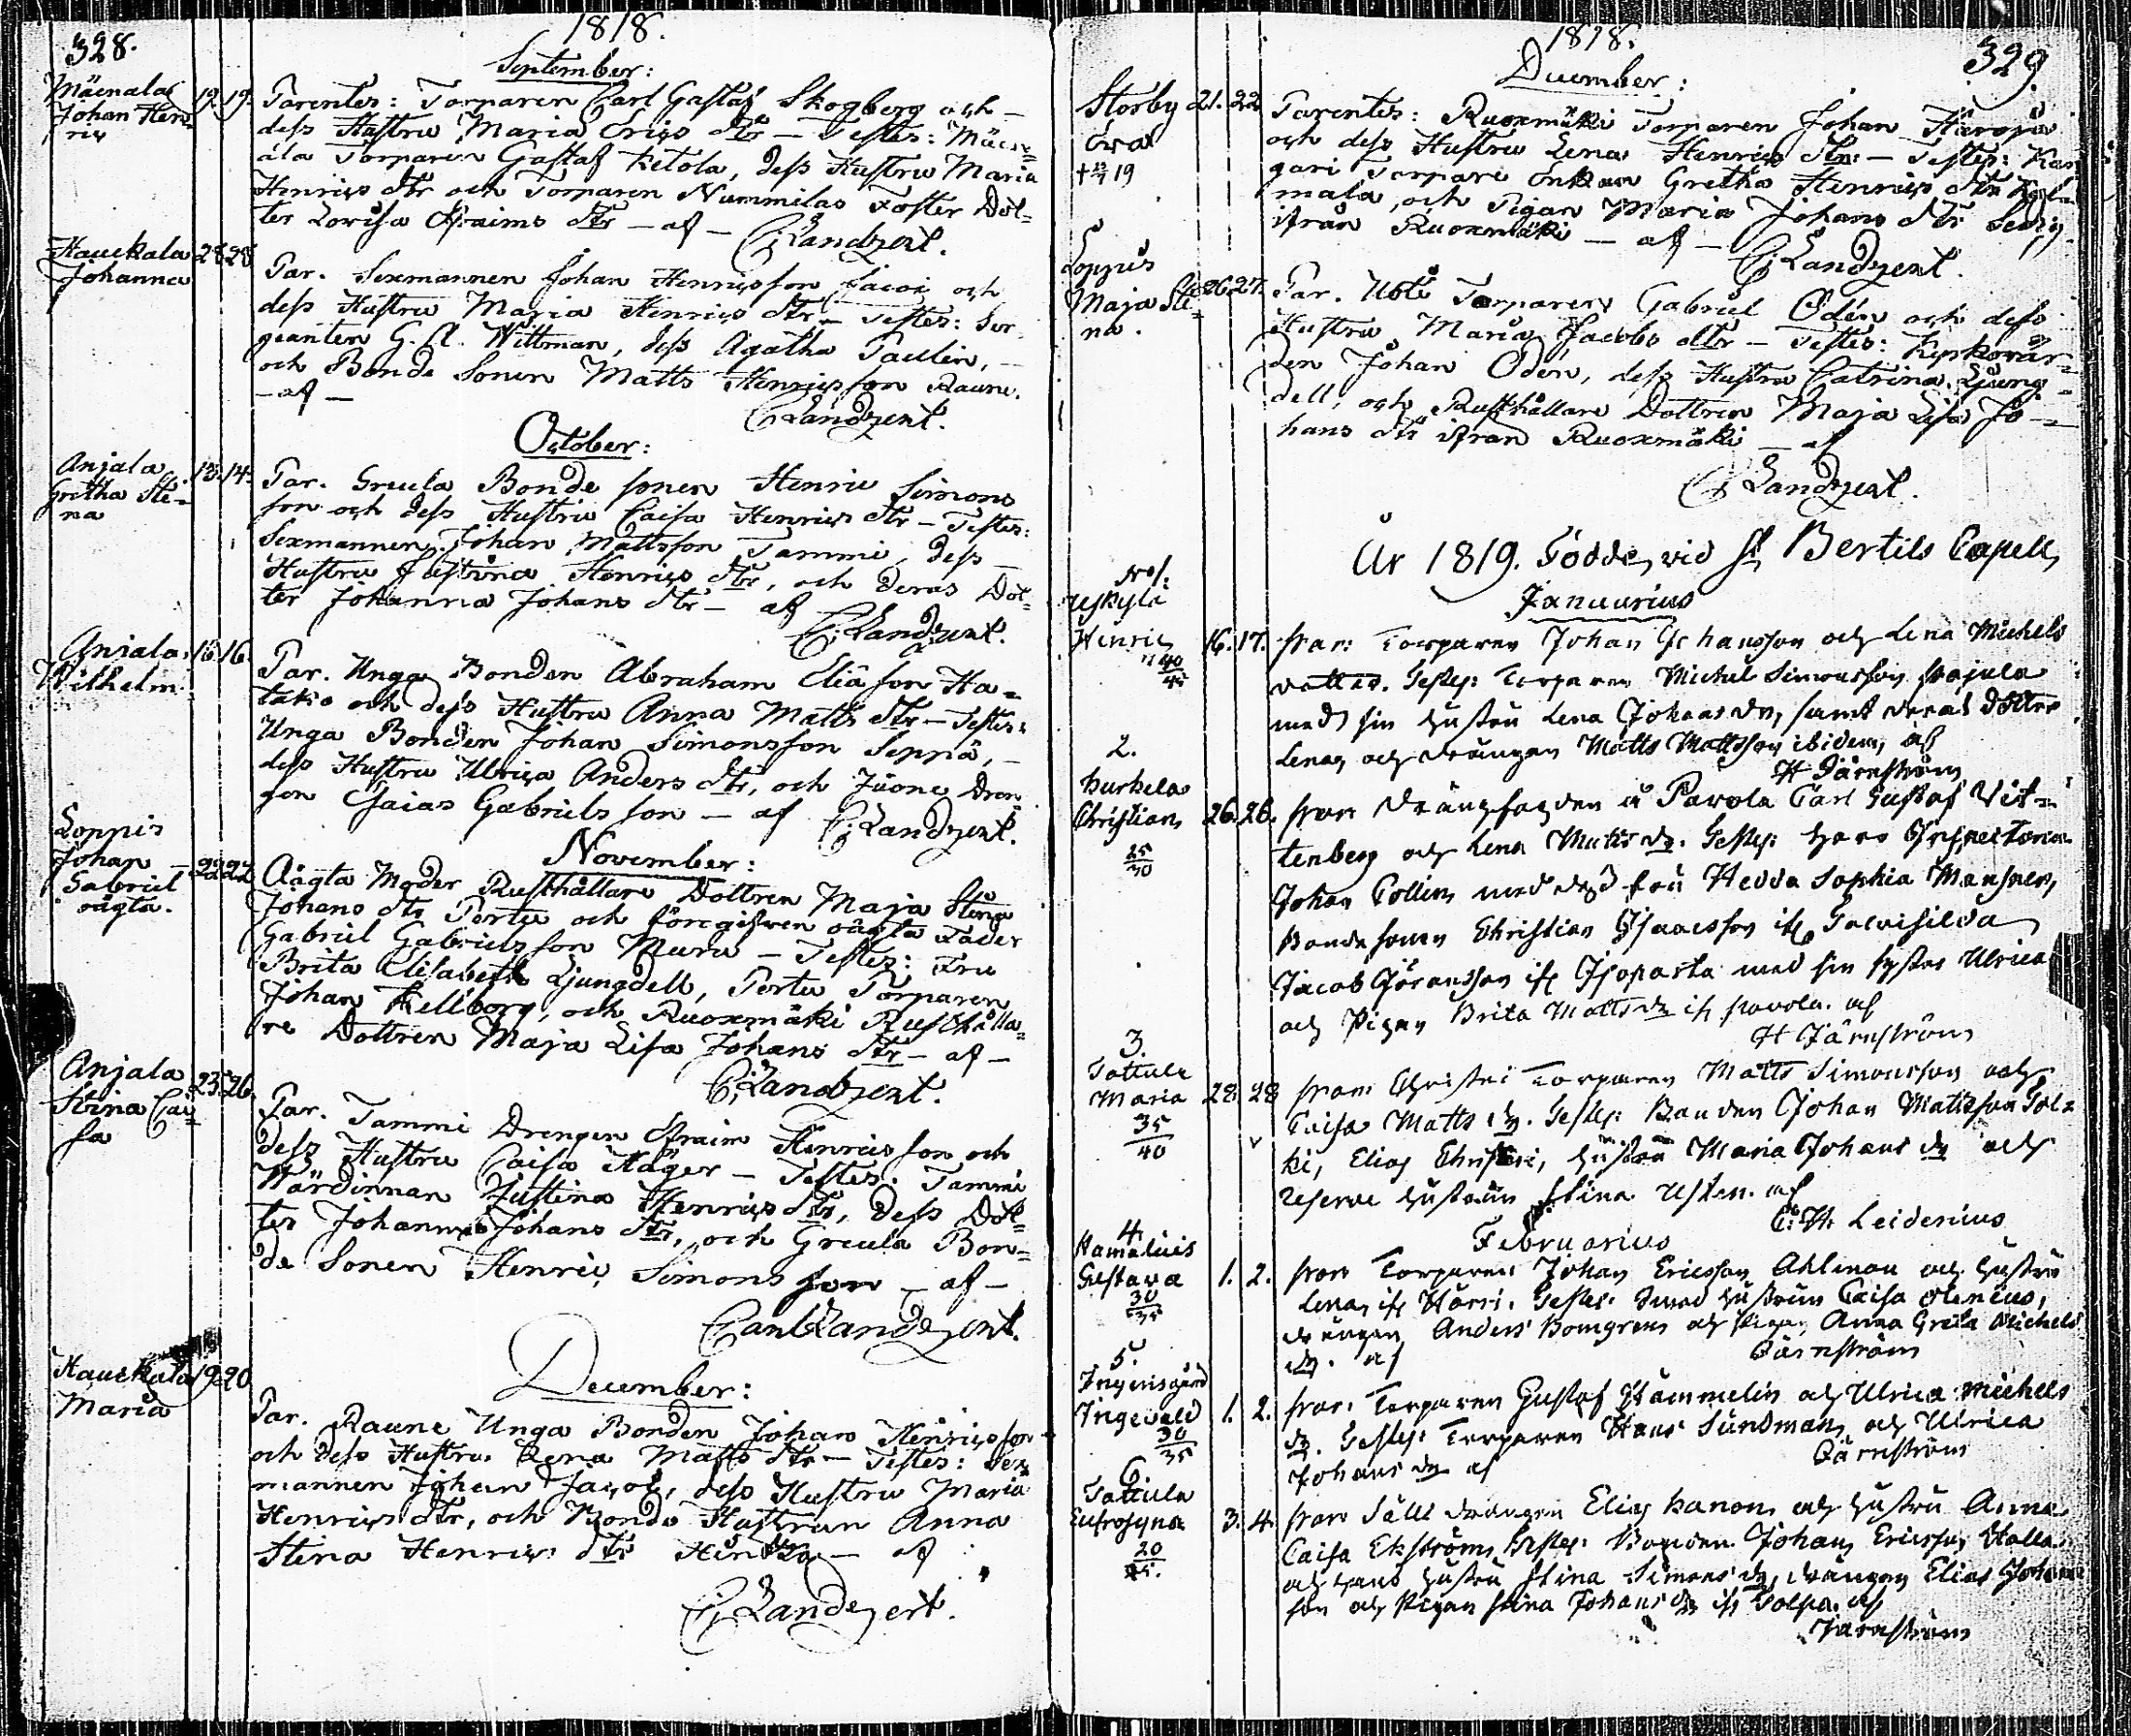 328.
1818.
September:
Mäenala
Johan Hen-
ric
19. 19.
Parentes: Torparen Carl Gustaf Skogberg och –
dess Hustru Maria Erics dtr – Testes: Mäen-
ala Torparen Gustaf Ketola, dess Hustru Maria
Henrics dtr och Torparen Nummilas Foster Dot-
ter Lovisa Efraims dtr – af – C: Landzert.
Hauckala
Johanna
28 28
Par. Sexmannen Johan Henricsson och
dess Hustru Maria Henrics dtr – Testes: Ser-
geanten G. A. Wittman, dess Agatha Paulin,
och Bonde Sonen Matts Henricsson Raune.
– af –
C Landzert.
October:
Anjala
Gretha Sti-
na
13. 14.
Par. Greula Bonde sonen Henric Simons
son och dess Hustru Caisa Henrics dtr – Testes:
Sexmannen Johan Mattsson Tammi, dess –
Hustru Justina Henrics dtr, och deras Dot-
ter Johanna Johans dtr – af
C: Landzert.
Anjala
Wilhelm
15. 16.
Par. Unga Bonden Abraham Elia son Ha-
takio och dess Hustru Anna Matts dtr – Testes:
Unga Bonden Johan Simonsson Seppä, –
dess Hustru Ulrica Anders dtr, och
son Esaias Gabriels son – af C: Landzert.
November:
Loppis
Johan –
Gabriel
oägta.
22 22
Oägta Moder Rusthållare Dottren Maja Stina
Johans dtr Perttu och föregifven oägta Fader
Gabriel Gabriels son Muru – Testes: Fru
Brita Elisabeth Ljungdell, Perttu Torparen
Johan Hellborg, och Ruoxmäki Rusthålla-
re Dottren Maja Lisa Johans dtr – af –
C: Landzert.
Anjala
Stina Cai-
sa
25. 26.
Par. Tammi Drengen Efraim Henrics son och
dess Hustru Caisa Häger – Testes: Tammi
Wärdinnan Justina Henrics dtr, dess Dot-
ter Johanna Johans dtr, och Greula Bon-
de Sonen Henric Simons son – af –
Carl Landzert.
December:
Hauckala
Maria
19. 20
Par. Raune Unga Bonden Johan Henricsson
och dess Hustru Lena Matts dtr – Testes: Sex-
mannen Johan dess Hustru Maria
Henrics dtr, och Bonde Hustrun Anna
Stina Henrics dtr – af
C: Landzert.
1818.
329.
December:
Storby
Eva
21. 22
Parentes: Ruoxmäki Torparen Johan
och dess Hustru Lena Henrics dtr – Testes:
Torpare Enkan Gretha Henrics dtr
och Pigan Maria Johans dtr
ifrån Ruoxmäki – af –
C: Landzert.
Loppis
Maja Sti-
na.
26. 27.
Par. Torparen Gabriel Odén och dess
Hustru Maria Jacobs dtr – Testes: Kyrkovär-
den Johan Odén, dess Hustru Catrina Ljung-
dell, och Rusthållare Dottren Maja Lisa Jo-
hans dtr ifrån Ruoxmäki – af
C Landzert.
År 1819. Födde vid St Bertils Capell,
Januarius
No 1.
Henric
40
45
16. 17.
Par: Torparen Johan Johansson och Lena Michels
dotter. Testes: Torparen Michel Simonsson Pajula
med sin hustru Lena Johans dr, samt deras dotter
Lena, och drängen Matts Mattsson ibidem, af
H Järnström
2.
Hurkela
Christian
25
30
26. 26.
Par: Drängfogden å Pavola Carl Gustaf Vit-
tenberg och Lena Matts dr. Testes: Herr Inspectoren
Johan Collin med dess fru Hedda Sophia Mansner,
Bondesonen Christian Isaacsson
Jacob Göransson med sin syster Ulrica
och Pigan Brita Matts dr if Pavola. af
H Järnström
3.
Tottula
Maria
35
40
28. 28
Par: Christi Torparen Matts Simonsson och
Caisa Matts dr. Testes: Bonden Johan Mattsson Tol-
ki, Elias Christi, hustru Maria Johans dr och
Reserve hustrun Stina af
C: H Leidenius
Februarius
4.
Gustava
30
35
1. 2.
Par: Torparen Johan Ericsson Ahlman och hustru
Lena, if Testes: hustrun Caisa
drängen Anders Bomgren och Pigan Anna Greta Michels
dr. af
Järnström
5.
Ingevald
30
35
1. 2.
Par: Torparen Gustaf Hammelin och Ulrica Michels
dr. Testes: Torparen Hans Sundman, och Ulrica
Johans dr af
Järnström
6.
Tottula
Eufrosyna
20
3. 4.
Par: drängen Elias Kanon, och hustru Anna
Caisa Ekström, Testes: Bonden Johan Ericsson
och hans hustru Stina Simons dr, drängen Elias Johans
son och Pigan Stina Johans dr if af
Järnström